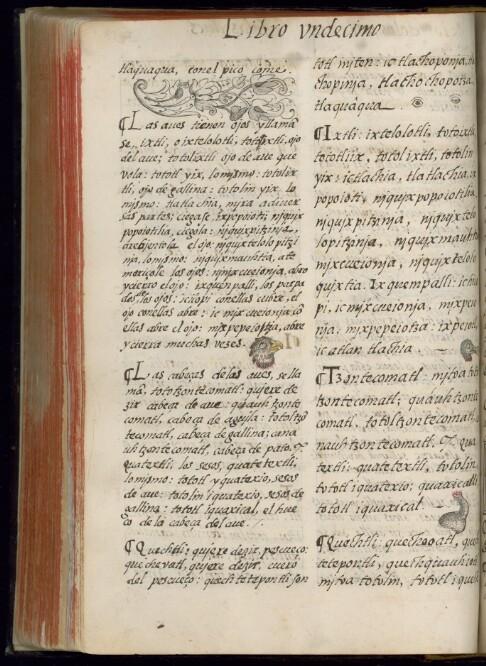 Libro vndecimo
tlaquaqua, con el pico come.
¶Las aues tienen ojos y llama
se, ixtli, o ixtelolotli, totoixtli, ojo
del aue; totolixtli ojo de aue que
vela: tototl yix, lo mismo: totolix
tli, ojo de gallina: totolin yix, lo
mismo: tlatlachia, mira a diuer
sas partes; ciegase, ixpopoioti; njquix
popoiotilia, ciegola: njquixpitzinja,
rebientole el ojo: njquixtelolopitzi
nja, lo mismo: njquixmauhtia,
los ojos: njmixcueionja, abro
y cierro el ojo: ixquempalli, los parpa
dos de los ojos: ic con ellas cubre, el
ojo con ellas abre: ic mixcueionja cō
ellas abre el ojo: mixpepeiotzia, abre
y cierra muchas vezes.
¶Las cabeças de las aues, se lla
mā, tototzontecomatl: quiere de
zir cabeça de aue: quauhtzonte
comatl, cabeça de aguila: tototzō
tecomatl, cabeça de gallina; cana
uhtzontecomatl, cabeça de pato.
quatextli: los sesos, quatetextli,
lo mismo: tototl yquatexio, sesos
de aue: totolin iquatexio, sesos de
gallina: tototl iquaxical, el hue
co de la cabeça del aue.
¶Quechtli; quiere dezir, pescueço:
quechevatl, quiere dezir, cuero
del pescueço: quechtetepontli son
totl mjton: ic tlachoponja,
chopinja, tlathochopotza
tlaquaqua.
¶Ixtli: ixtelolotli, totoixtli
totoliix, totolixtli, totolin
yix: ic tlachia, tlatlachia,
popoioti, njquixpopoiotilia,
njquixpitzinja, njquixtelo
lopitzinja, njquixmauhtia
mjxcueionja, njquixtelolo
quixtia. Ixquempalli: ic
pi, ic mjxcueionja, mixpepe
nja, mixpepeiotza: ixpepeio
ic atlan tlachia.
¶Tzontecomatl: mjtoa
tzontecomatl; quauhtzonte
comatl, totoltzontecomatl
nauhtzontecomatl.
textli: quatetextli, totolin
tototl iquatexio; quaxicalli
tototl iquaxical
¶Quechtli: quecheoatl, quech
tetepontli, quechquauhiotl
mjtoa totolin, tototl iquech